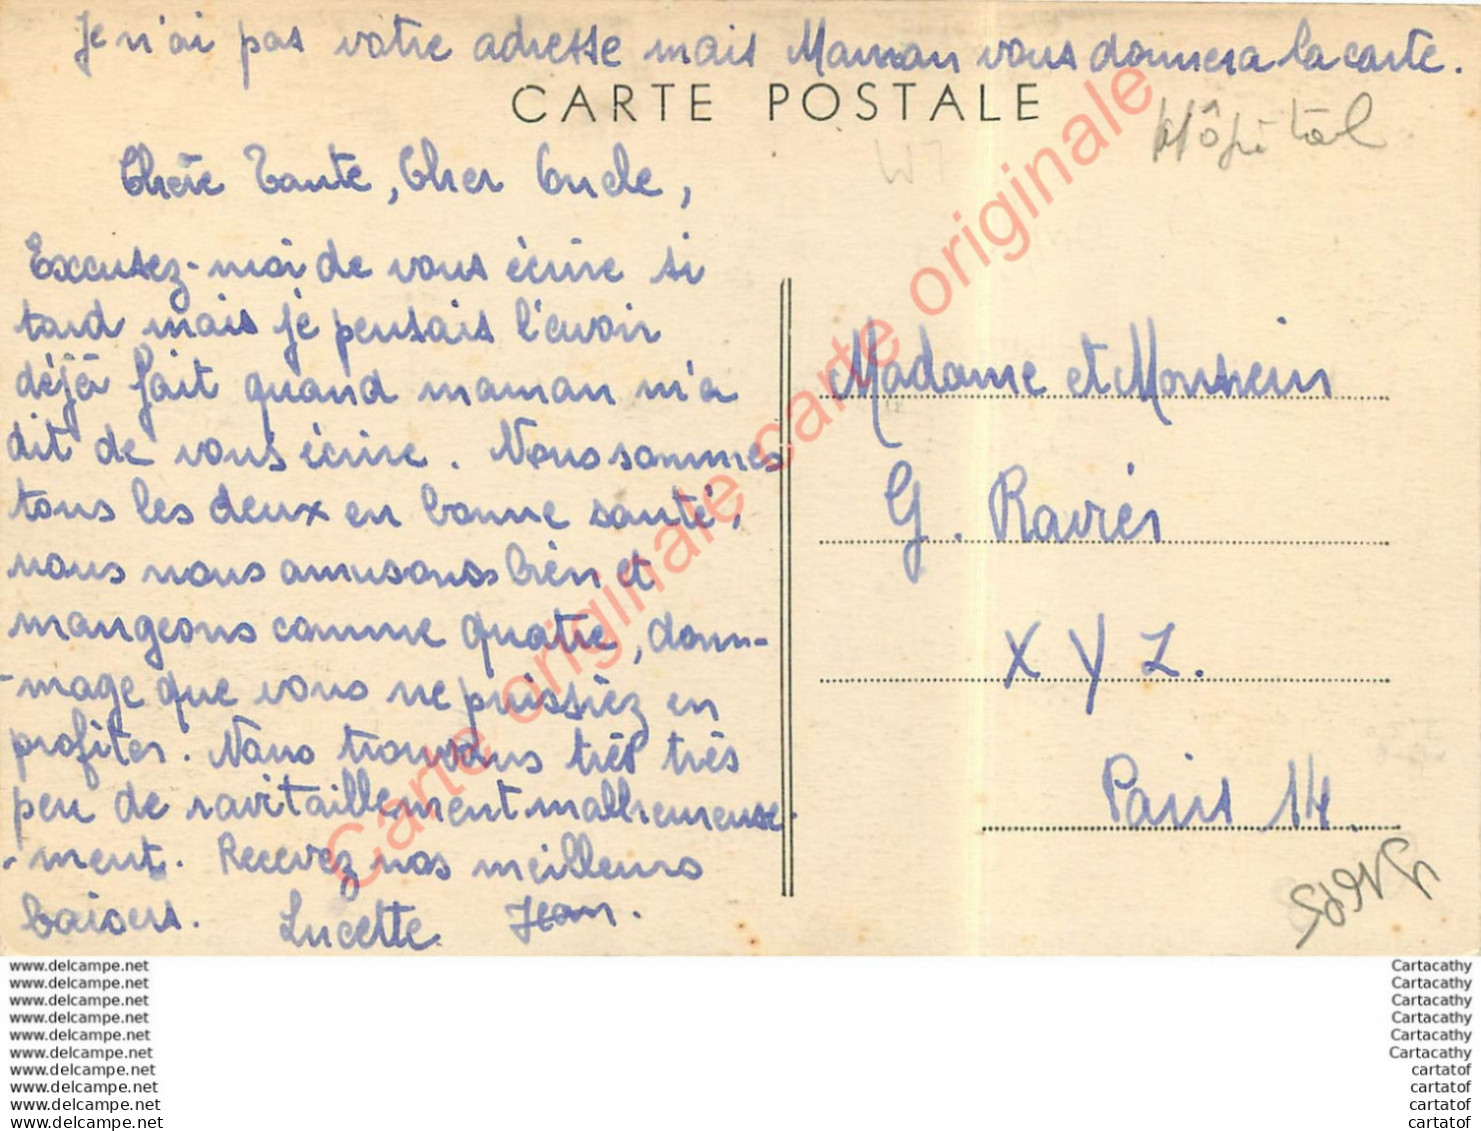 Je n'ai pas votre adresse mais Maman vous donnera la carte.
CARTE POSTALE
Hôpital
Chère Tante, Cher Oncle,
Excusez-moi de vous écrire si
tard mais je pensais l'avoir
déjà fait quand maman m'a
dit de vous écrire. Nous sommes
tous les deux en bonne santé,
nous nous amusons bien et
mangeons comme quatre, dom-
-mage que vous ne puissiez en
profiter. Nous trouvons très très
peu de ravitaillement malheureuse-
-ment. Recevez nos meilleurs
baisers. Lucette Jean.
Madame et Monsieur
G. Ravier
X Y Z.
Paris 14.
Carte originale carte originale carte originale
www.delcampe.net
www.delcampe.net
www.delcampe.net
www.delcampe.net
www.delcampe.net
www.delcampe.net
www.delcampe.net
www.delcampe.net
www.delcampe.net
www.delcampe.net
Cartacathy
Cartacathy
Cartacathy
Cartacathy
Cartacathy
Cartacathy
cartatof
cartatof
cartatof
cartatof